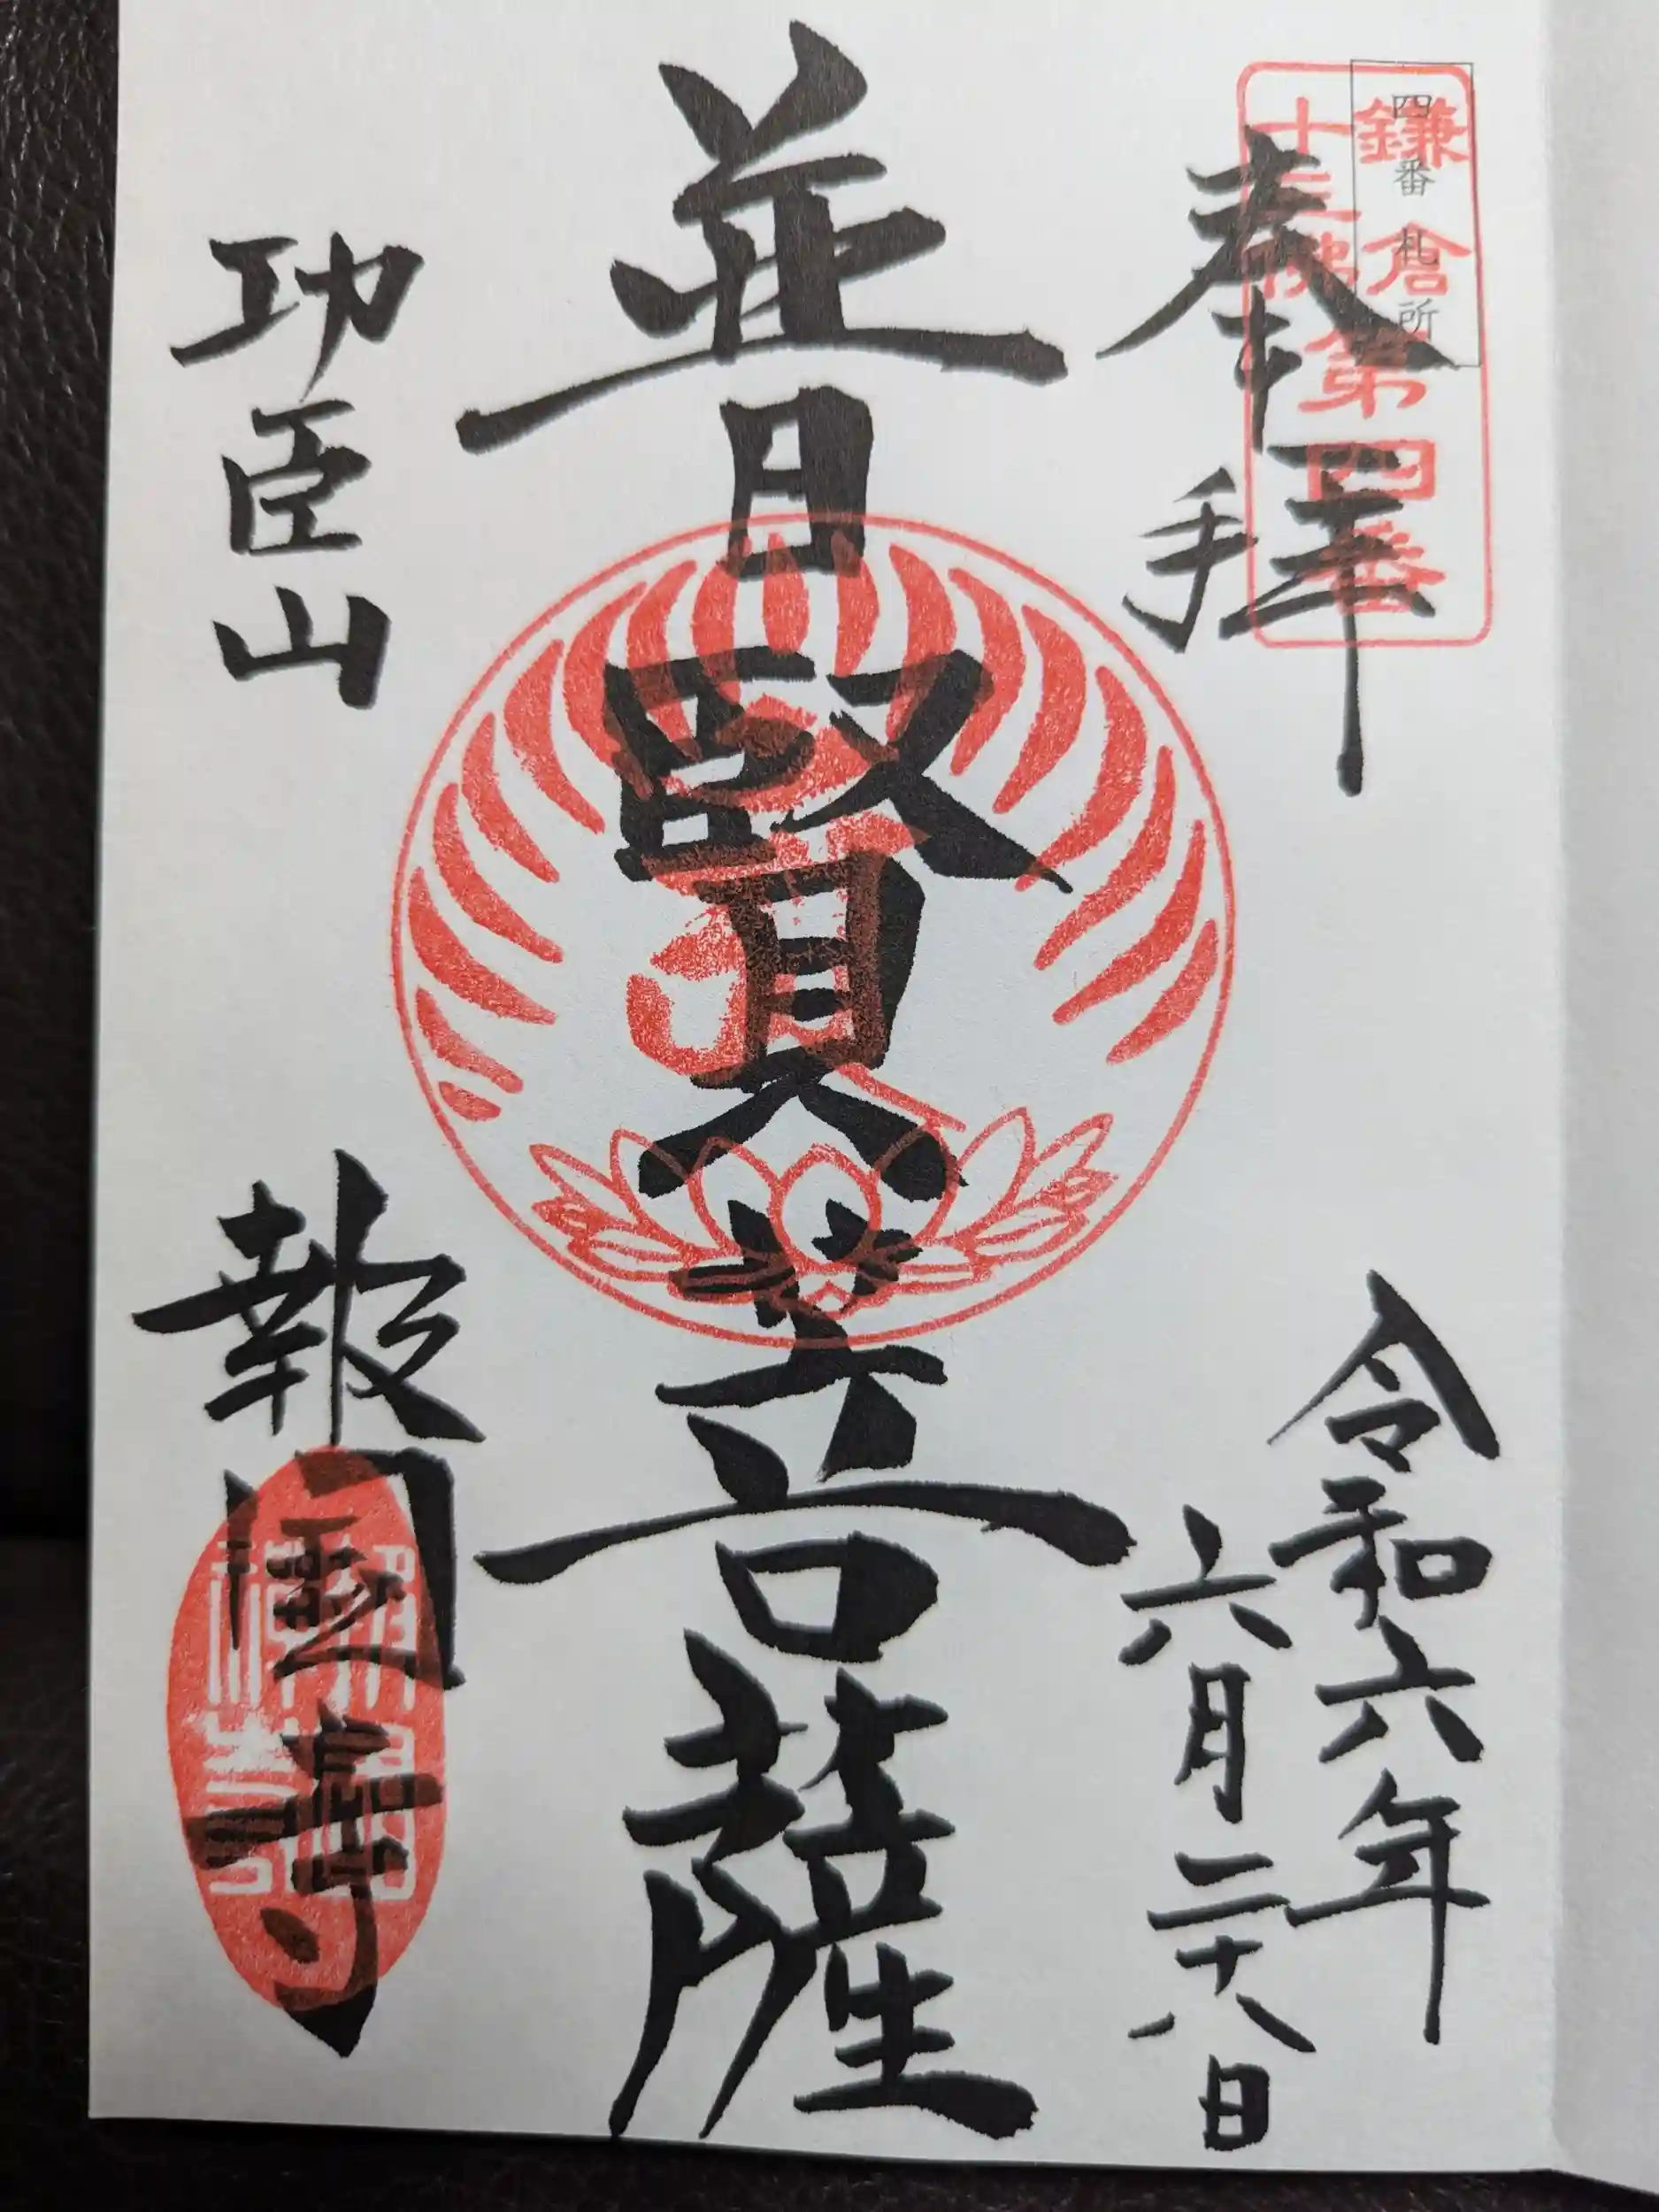 四番札所
鎌倉
十三佛
第四番
奉拝
令和六年
六月二十八日
普賢菩薩
功臣山
報國寺